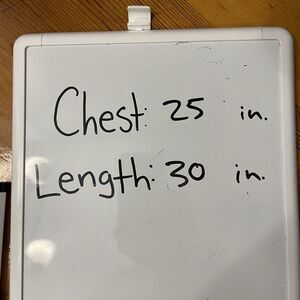 Chest: 25 in.
Length: 30 in.